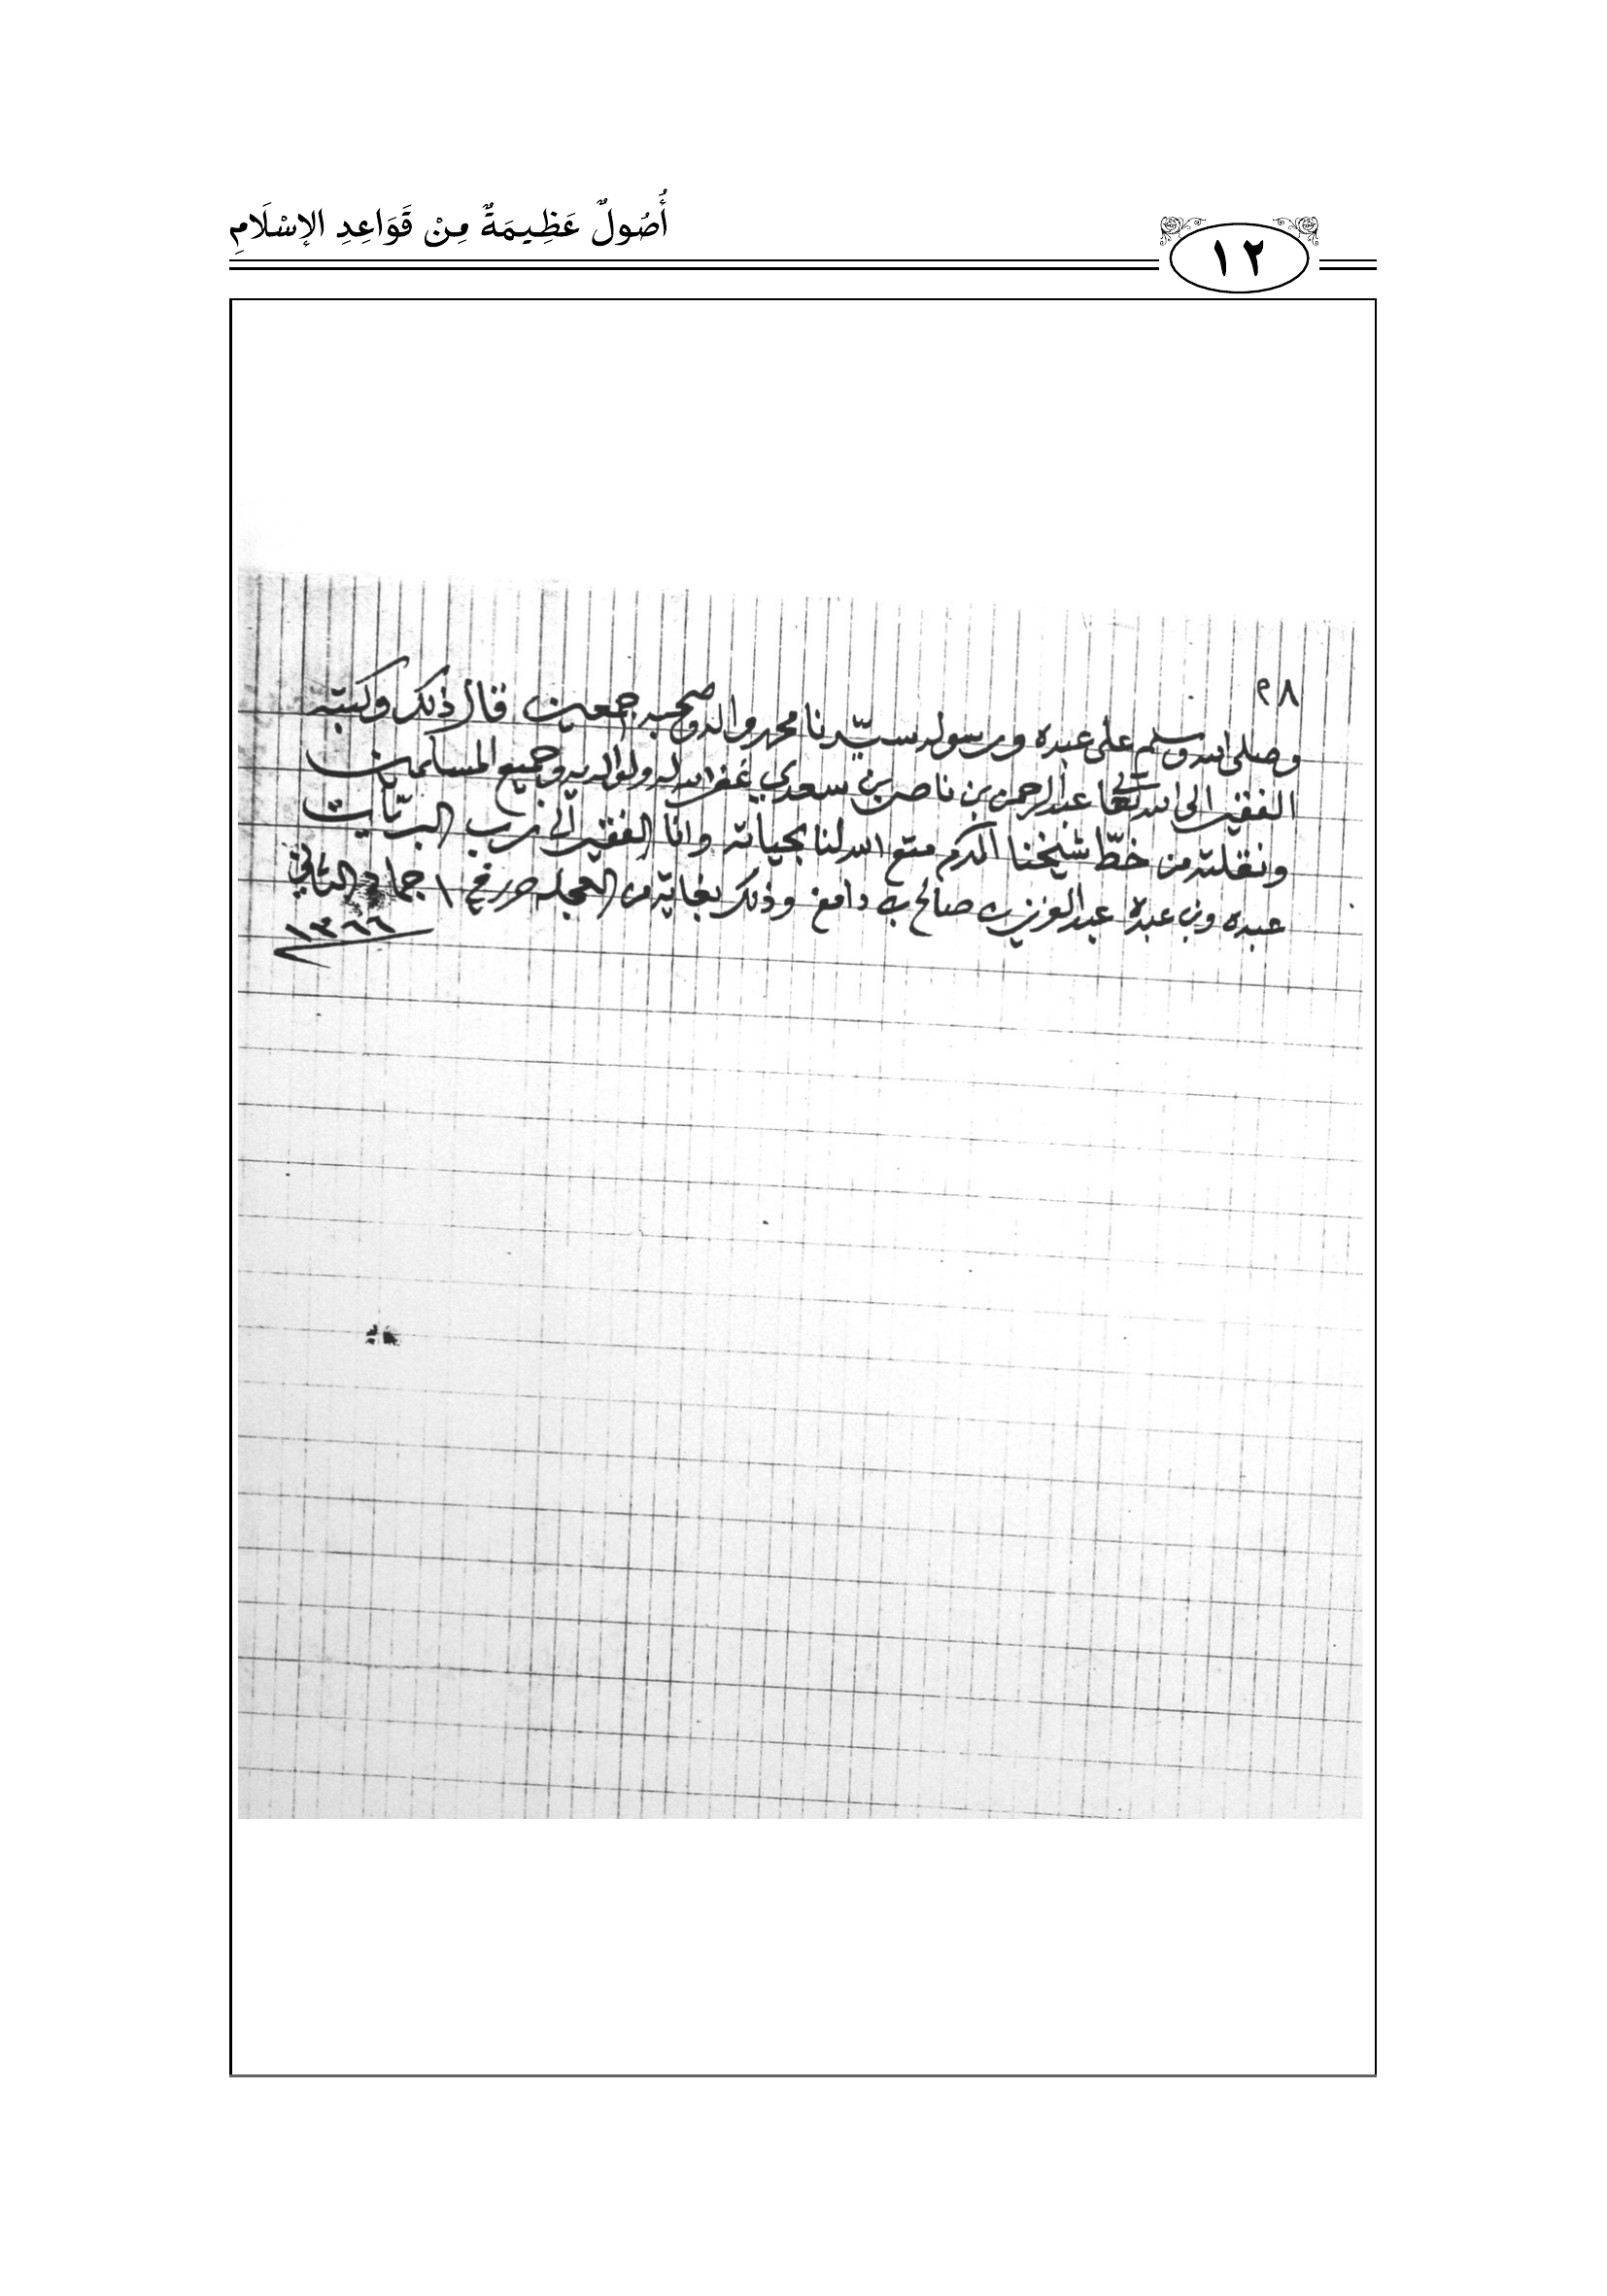 أُصُولٌ عَظِيمَةٌ مِنْ قَوَاعِدِ الإِسْلَامِ
١٢
٢٨
وصلى الله وسلم على عبده ورسوله سيّدنا محمد واله وصحبه اجمعين قال ذلك وكتبه
الفقير الى الله تعالى عبدالرحمن بن ناصر بن سعدي غفر الله له ولوالديه وجميع المسلمين
ونقلته من خطّ شيخنا المكرم متع الله لنا بحياته وانا الفقير الى رب البريّات
عبده وبن عبده عبدالعزيز بن صالح بن دامغ وذلك بغاية من العجلة حرر في ١ جماد الثاني
١٣٦٦